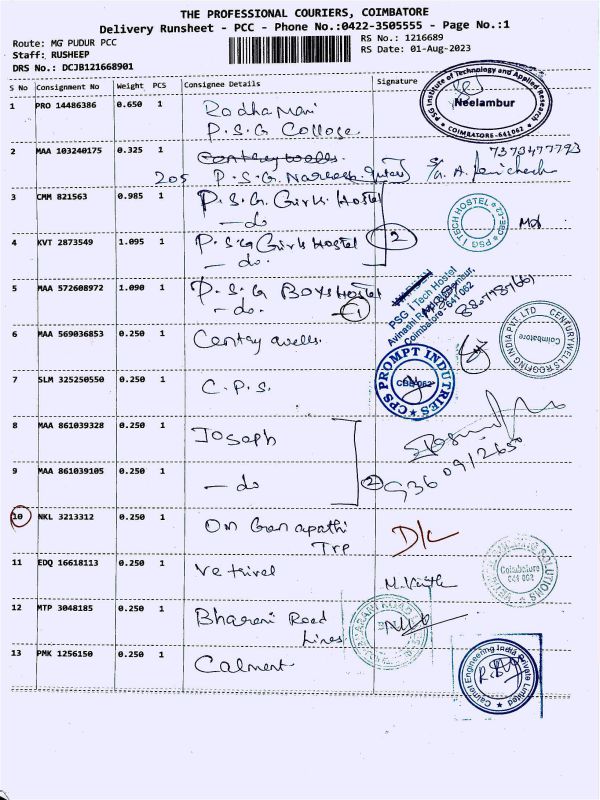 THE PROFESSIONAL COURIERS, COIMBATORE
Delivery Runsheet - PCC - Phone No.:0422-3505555 - Page No.:1
Route: MG PUDUR PCC
Staff: RUSHEEP
DRS No.: DCJB121668901
RS No.: 1216689
RS Date: 01-Aug-2023
S No Consignment No Weight PCS Consignee Details Signature
1 PRO 14486386 0.650 1 Radha Mani
P.S.G College
PSG Institute of Technology and Applied Research
Neelambur
COIMBATORE-641 062
2 MAA 103240175 0.325 1 Centurywells.
205 P.S.G. 7373477793
3 CMM 821563 0.985 1 P.S.G Girls Hostel
- do
PSG I TECH HOSTEL
4 KVT 2873549 1.095 1 P.S.G Girls Hostel 2
- do.
5 MAA 572608972 1.090 1 P.S.G BOYS Hostel
- do. 1
WARDEN
PSG I Tech Hostel
Coimbatore - 641 062
6 MAA 569036853 0.250 1
CENTURYWELLS ROOFING INDIA PVT. LTD
Coimbatore
7 SLM 325250550 0.250 1 C.P.S.
CPS PROMPT INDUTRIES
CBE-062
8 MAA 861039328 0.250 1 Joseph
9 MAA 861039105 0.250 1 - do 2 9360912650
10 NKL 3213312 0.250 1 Om Ganapathi
Trp D/L
11 EDQ 16618113 0.250 1 Vetrivel
Coimbatore
641 062
SOLUTIONS
12 MTP 3048185 0.250 1 Bharani Road
Lines
13 PMK 1256150 0.250 1 Calment
Calmet Engineering India Private Limited